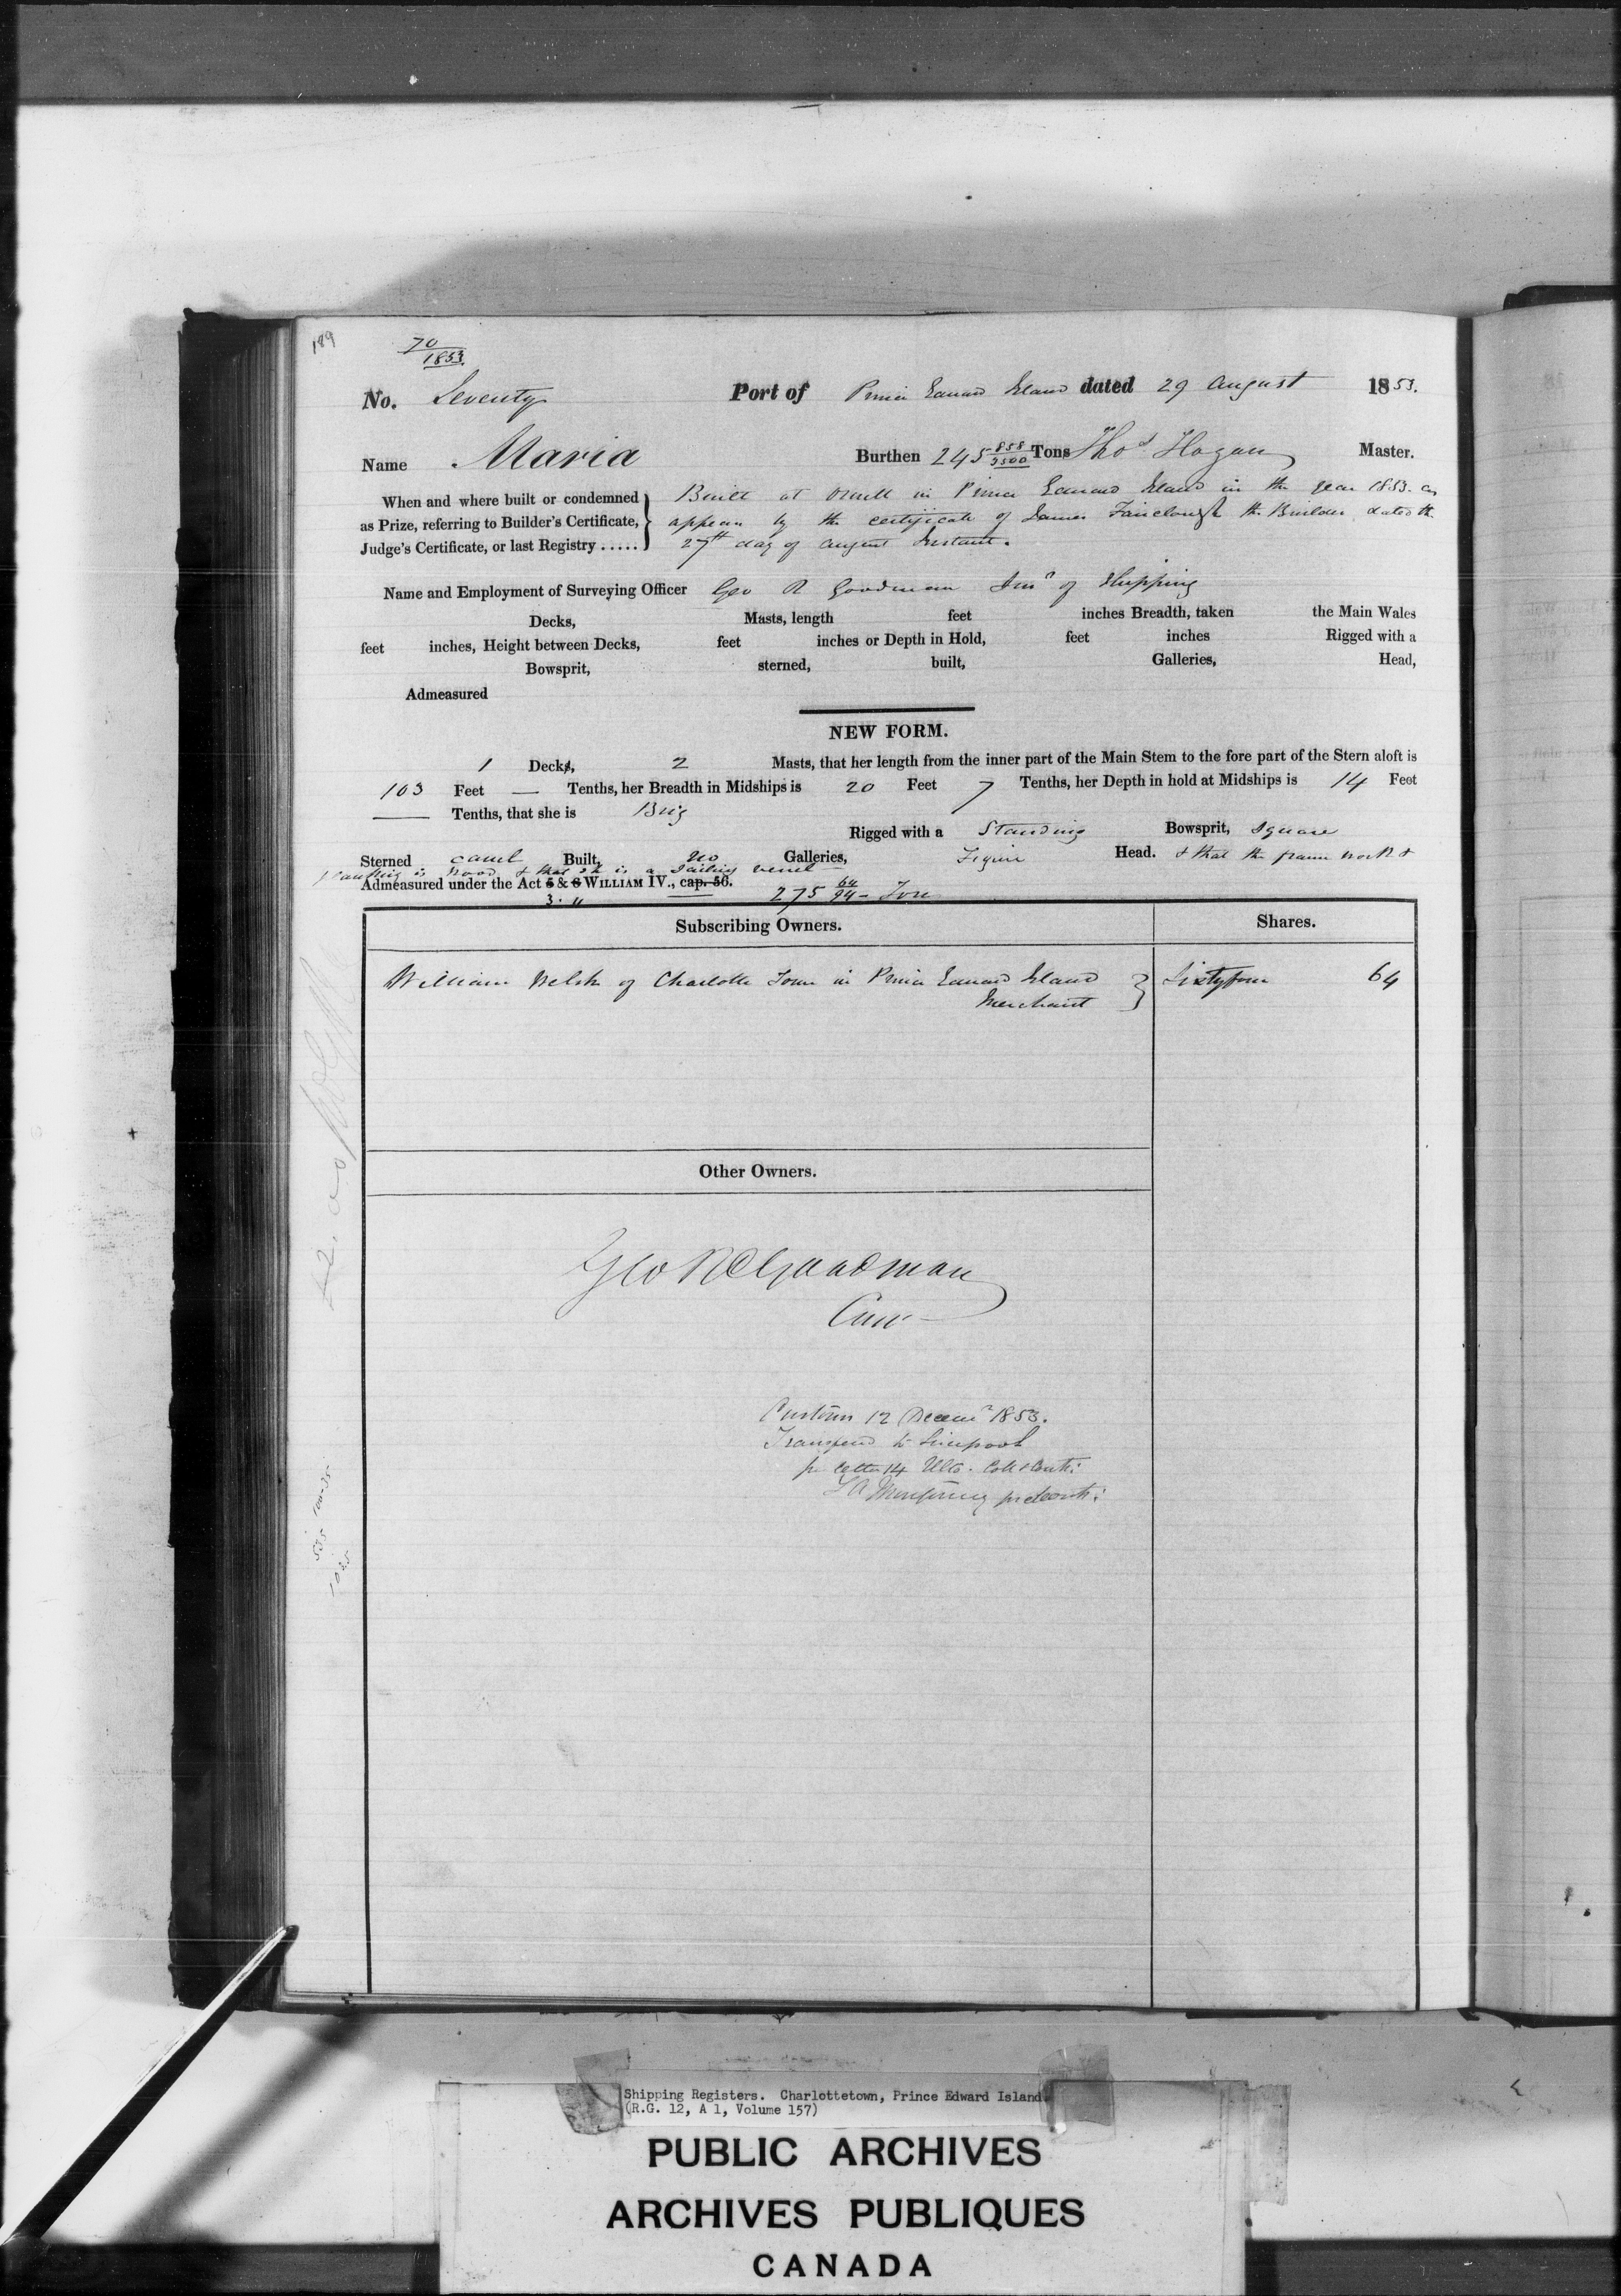 189
70
1853.
No. Seventy Port of Prince Edward Island dated 29 August 1853.
Name Maria Burthen 245 858/3500 Tons Thos Hogan Master.
When and where built or condemned Built at Orwell in Prince Edward Island in the year 1853. as
as Prize, referring to Builder's Certificate, appears by the certificate of James Fairclough the Builder dated the
Judge's Certificate, or last Registry ..... 27th day of August Instant.
Name and Employment of Surveying Officer Geo R Goodman Surr of Shipping
Decks, Masts, length feet inches Breadth, taken the Main Wales
feet inches, Height between Decks, feet inches or Depth in Hold, feet inches Rigged with a
Bowsprit, sterned, built, Galleries, Head,
Admeasured
NEW FORM.
1 Decks, 2 Masts, that her length from the inner part of the Main Stem to the fore part of the Stern aloft is
103 Feet — Tenths, her Breadth in Midships is 20 Feet 7 Tenths, her Depth in hold at Midships is 14 Feet
— Tenths, that she is Brig
Rigged with a Standing Bowsprit, Square
Sterned carvel Built, no Galleries, Figure Head. & that the frame work &
planking is wood & that she is a Sailing vessel
Admeasured under the Act 5 & 6 WILLIAM IV., cap. 56. 275 64/94 - Tons
3. "
Subscribing Owners. Shares.
William Welsh of Charlotte Town in Prince Edward Island Sixty four 64
Merchant
Other Owners.
Geo R Goodman
Customs 12 Decemr 1853.
Transferred to Liverpool
pr letter 14 Ulto.
535 100-35
1035
Shipping Registers. Charlottetown, Prince Edward Island
(R.G. 12, A 1, Volume 157)
PUBLIC ARCHIVES
ARCHIVES PUBLIQUES
CANADA